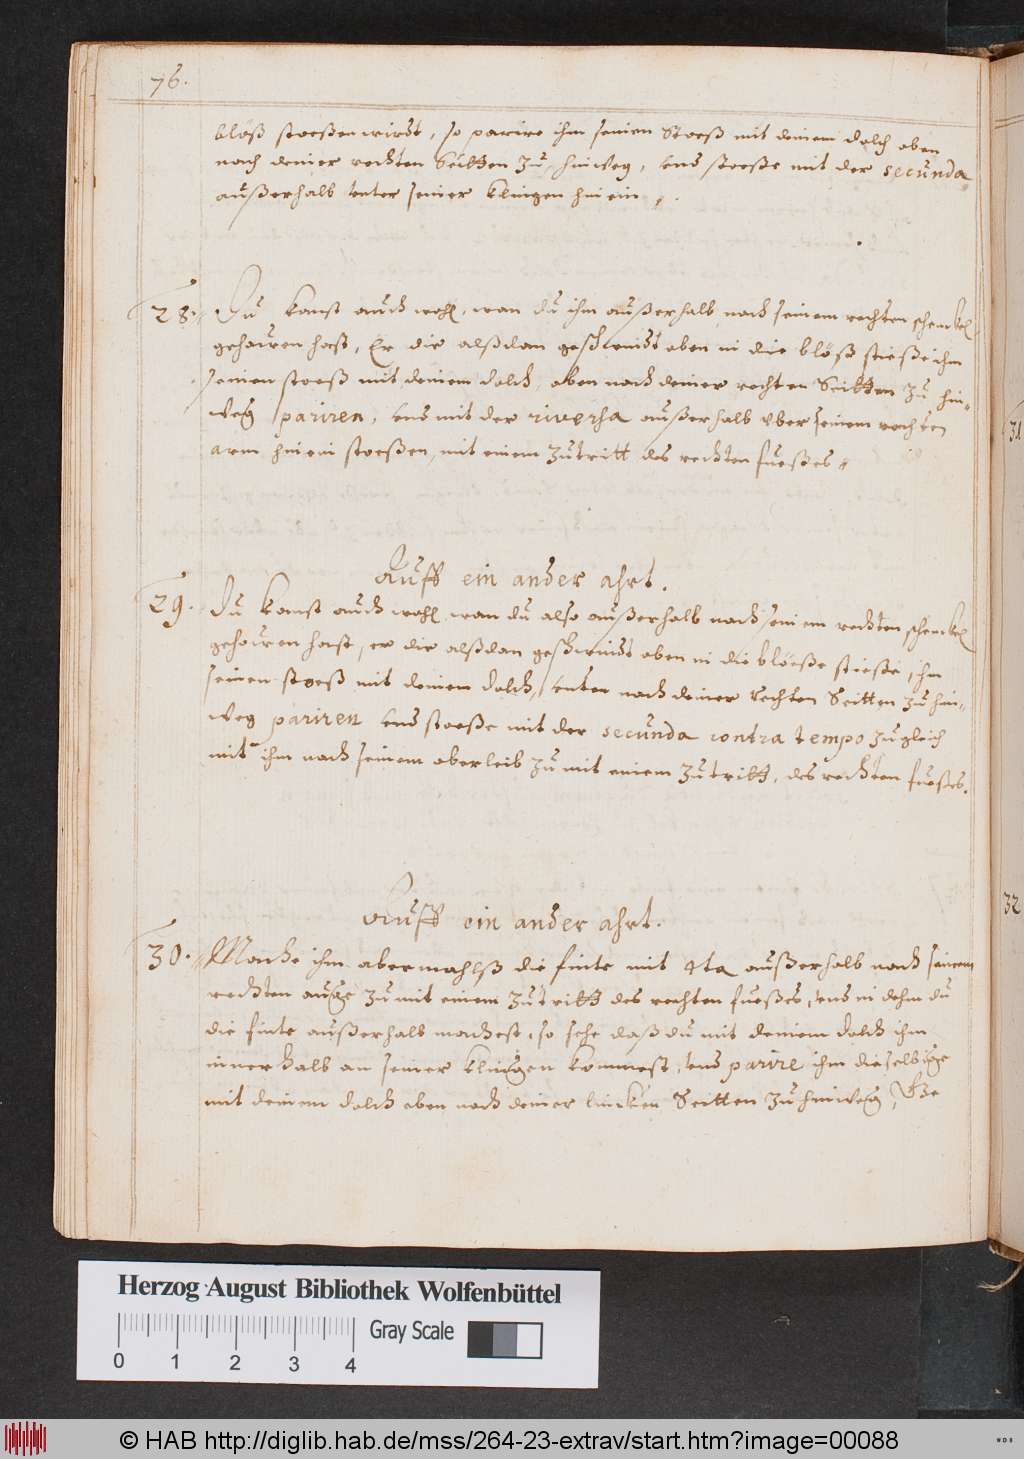 76.
blöß stoeßen wirdt, so parire ihm seinen Stoeß mit deinem dolch oben
nach deiner rechten Seitten zu hinweg, vnd stoeße mit der secunda
außerhalb vnter seiner klingen hinein.
28. Du kanst auch wohl, wan du ihm außerhalb nach seinem rechten schenckel
gehauwen hast, Er dir alßdan geschwindt oben in die blöß stieße ihm
seinen stoeß mit deinem dolch, oben nach deiner rechten Seitten zu hin-
weg pariren, vnd mit der riversa außerhalb vber seinem rechten
arm hinein stoeßen, mit einem zutritt des rechten fueßes
Auff ein ander ahrt.
29. Du kanst auch wohl, wan du also außerhalb nach seinem rechten schenckel
gehauwen hast, er dir alßdan geschwindt oben in die blöeße stieße, ihm
seinen stoeß mit deinem dolch, vnten nach deiner rechten Seitten zu hin-
weg pariren vnd stoeße mit der secunda contra tempo zugleich
mit ihm nach seinem oberleib zu mit einem zutritt, des rechten fueßes.
Auff ein ander ahrt.
30. Mache ihm abermahlß die finte mit 4ta außerhalb nach seinem
rechten auge zu mit einem zutritt des rechten fueßes, vnd in dehm du
die finte außerhalb machest, so sehe daß du mit deinem dolch ihm
innerhalb an seiner klingen kommest, vnd parire ihm dieselbige
mit deinem dolch oben nach deiner lincken Seitten zu hinweg,
Herzog August Bibliothek Wolfenbüttel
Gray Scale
0 1 2 3 4
31
32
© HAB http://diglib.hab.de/mss/264-23-extrav/start.htm?image=00088